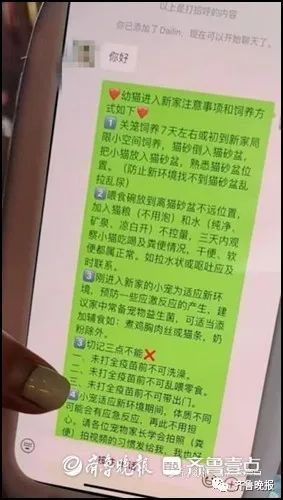 以上是打招呼的内容
你已添加了 Dailin，现在可以开始聊天了。
你好
❤️幼猫进入新家注意事项和饲养方
式如下❤️
1️⃣ 关笼饲养7天左右或初到新家局
限小空间饲养，猫砂倒入猫砂盆，
把小猫放入猫砂盆，熟悉猫砂盆位
置。（防止新环境找不到猫砂盆乱
拉乱尿）
2️⃣ 喂食碗放到离猫砂盆不远位置，
加入猫粮（不用泡）和水（纯净、
矿泉、凉白开）不控量，三天内观
察小猫吃喝及粪便情况，干便、软
便都属正常。如拉水状或呕吐应及
时联系。
3️⃣ 刚进入新家的小宠为适应新环
境，预防一些应激反应的产生，建
议家中常备宠物益生菌，可适当添
加辅食如：煮鸡胸肉丝或猫条，奶
粉除外。
3️⃣ 切记三点不能❌
一、未打全疫苗前不可洗澡。
二、未打全疫苗前不可乱喂零食。
三、未打全疫苗前不可带出门。
4️⃣ 小宠适应新环境期间，体质不同
可能会有应急反应，再此不用担
心。请各位宠物家长学会拍照（粪
便）拍视频的习惯发给我，我也
齐鲁晚报 齐鲁壹点
齐鲁晚报